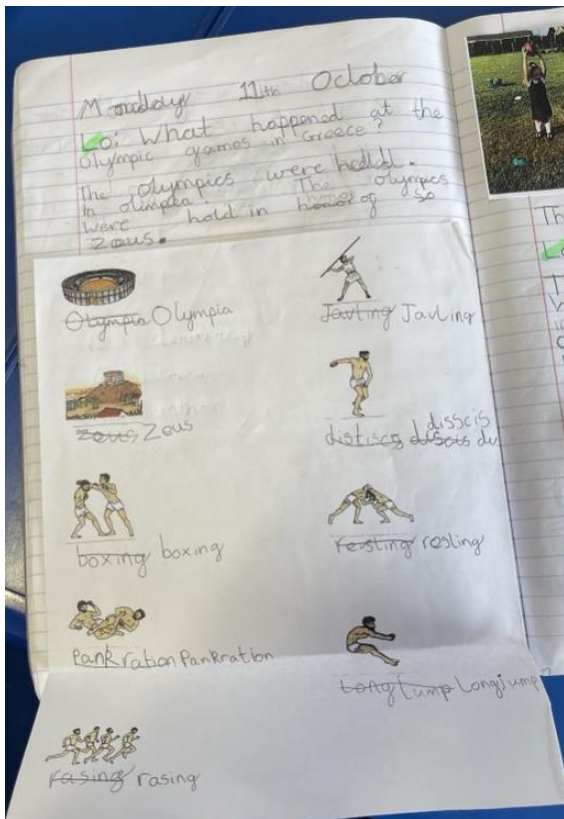 Monday 11th October
Lo: What happened at the
Olympic games in Greece?
The olympics were hedld.
In olimpea The olympics
were hold in honor of so
Zeus.
Olympia Olympia
Javling Javling
Zeus, Zeus
disscis
distiscs discis du
boxing boxing
resting resling
Pankration Pankration
Long Lump Longjump
rasing rasing
Th